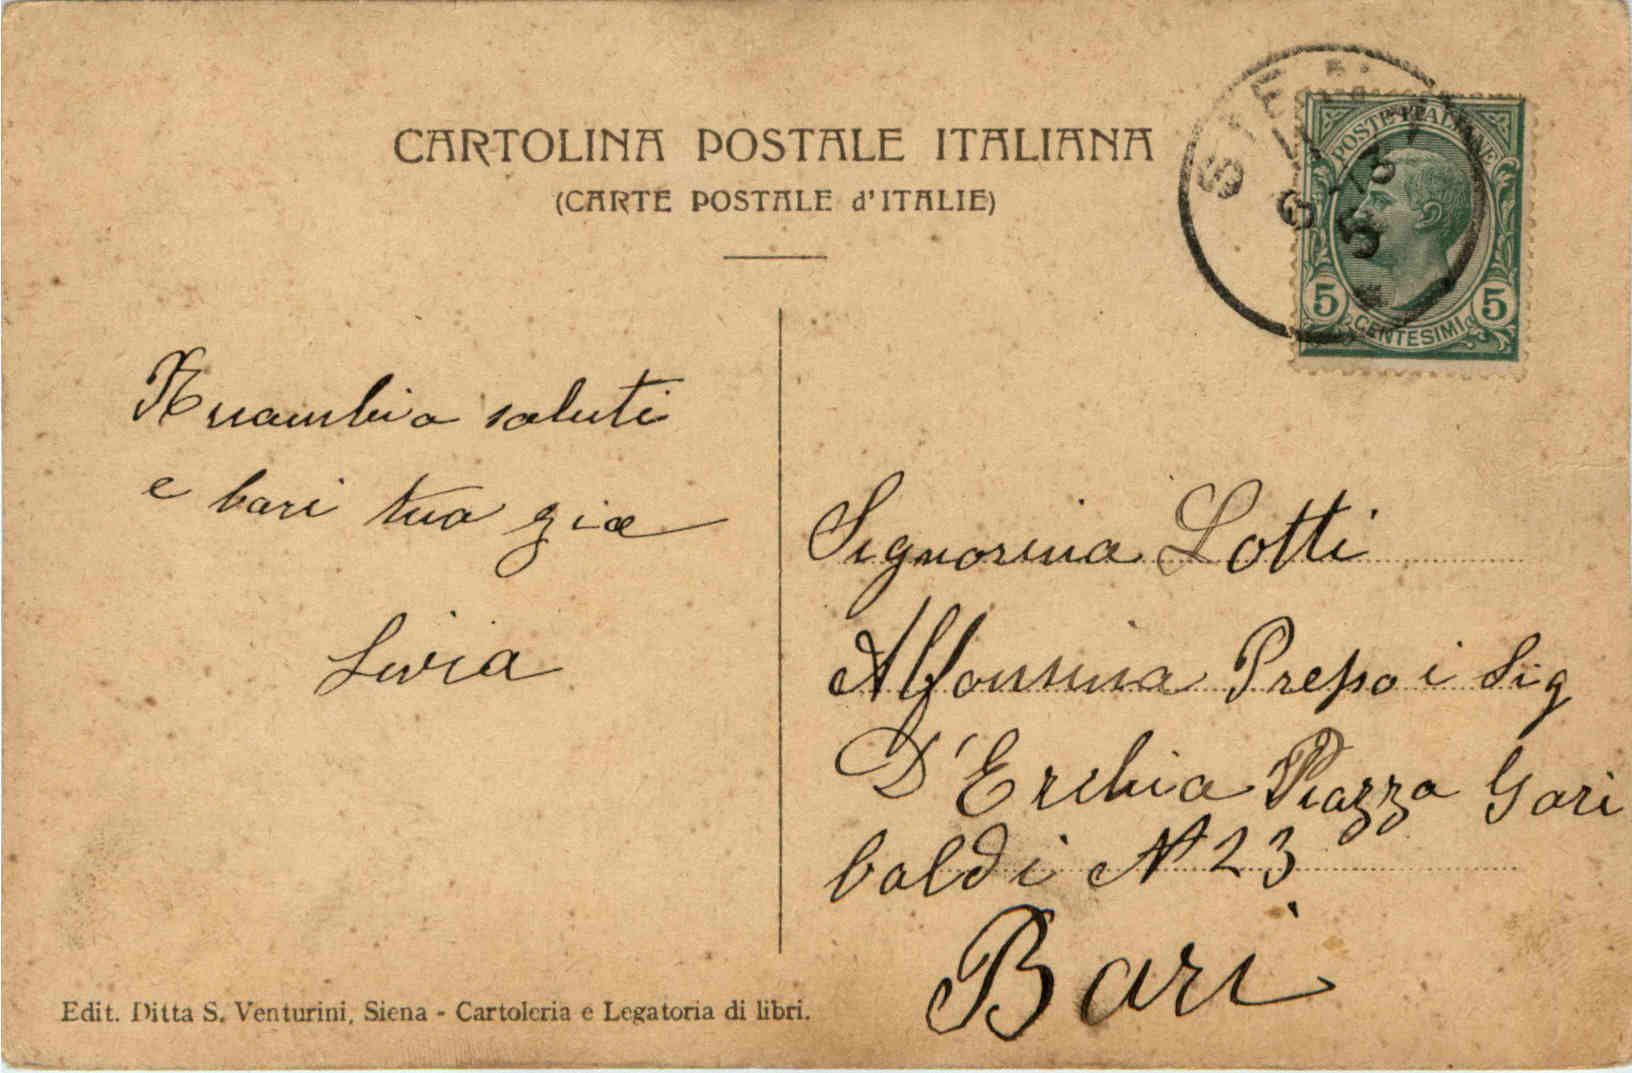 CARTOLINA POSTALE ITALIANA
(CARTE POSTALE d'ITALIE)
SIENA
POSTE ITALIANE
5 CENTESIMI 5
saluti
e bari tua zia
Livia
Signorina Lotti
Alfonsina Presso i Sig
D'Erchia Piazza Gari
baldi N 23
Bari
Edit. Ditta S. Venturini, Siena - Cartoleria e Legatoria di libri.